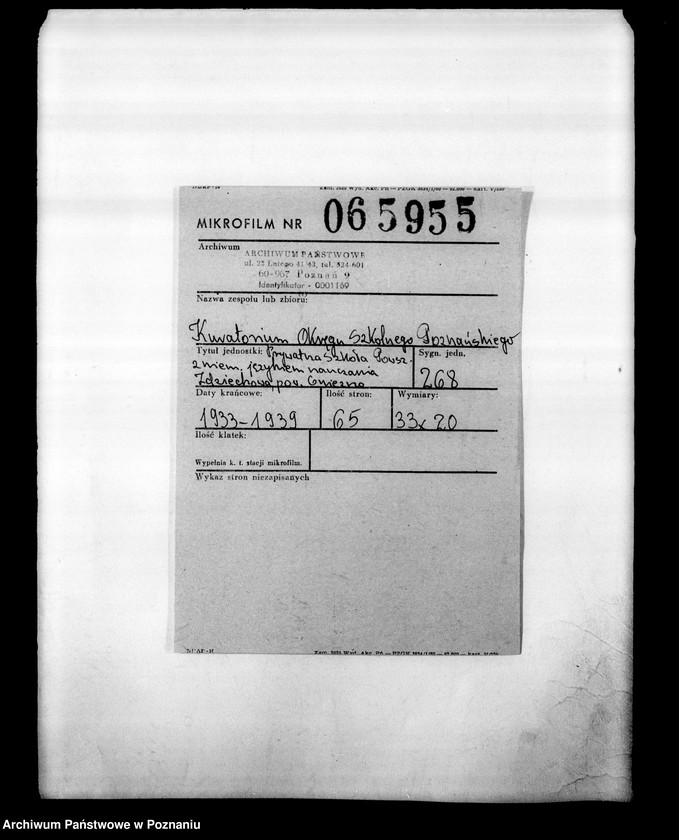 MIKROFILM NR 065955
Archiwum
ARCHIWUM PAŃSTWOWE
ul. 23 Lutego 41/43, tel. 524-601
60-967 Poznań 9
Identyfikator - 0001169
Nazwa zespołu lub zbioru:
Kuratorium Okręgu Szkolnego Poznańskiego
Tytuł jednostki: Prywatna Szkoła Powsz.
z niem. językiem nauczania
Zdziechowa, pow. Gniezno
Sygn. jedn.
268
Daty krańcowe:
1933-1939
Ilość stron:
65
Wymiary:
33x20
Ilość klatek:
Wypełnia k. t. stacji mikrofilm.
Wykaz stron niezapisanych
Archiwum Państwowe w Poznaniu